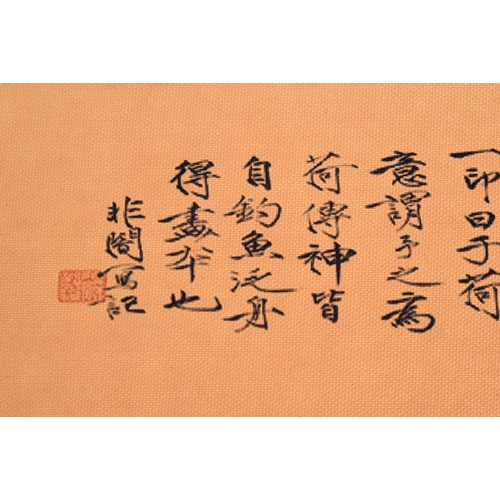 一印曰于荷
意謂予之為
荷傳神皆
自釣魚泛舟
得畫本也
非闇寫記